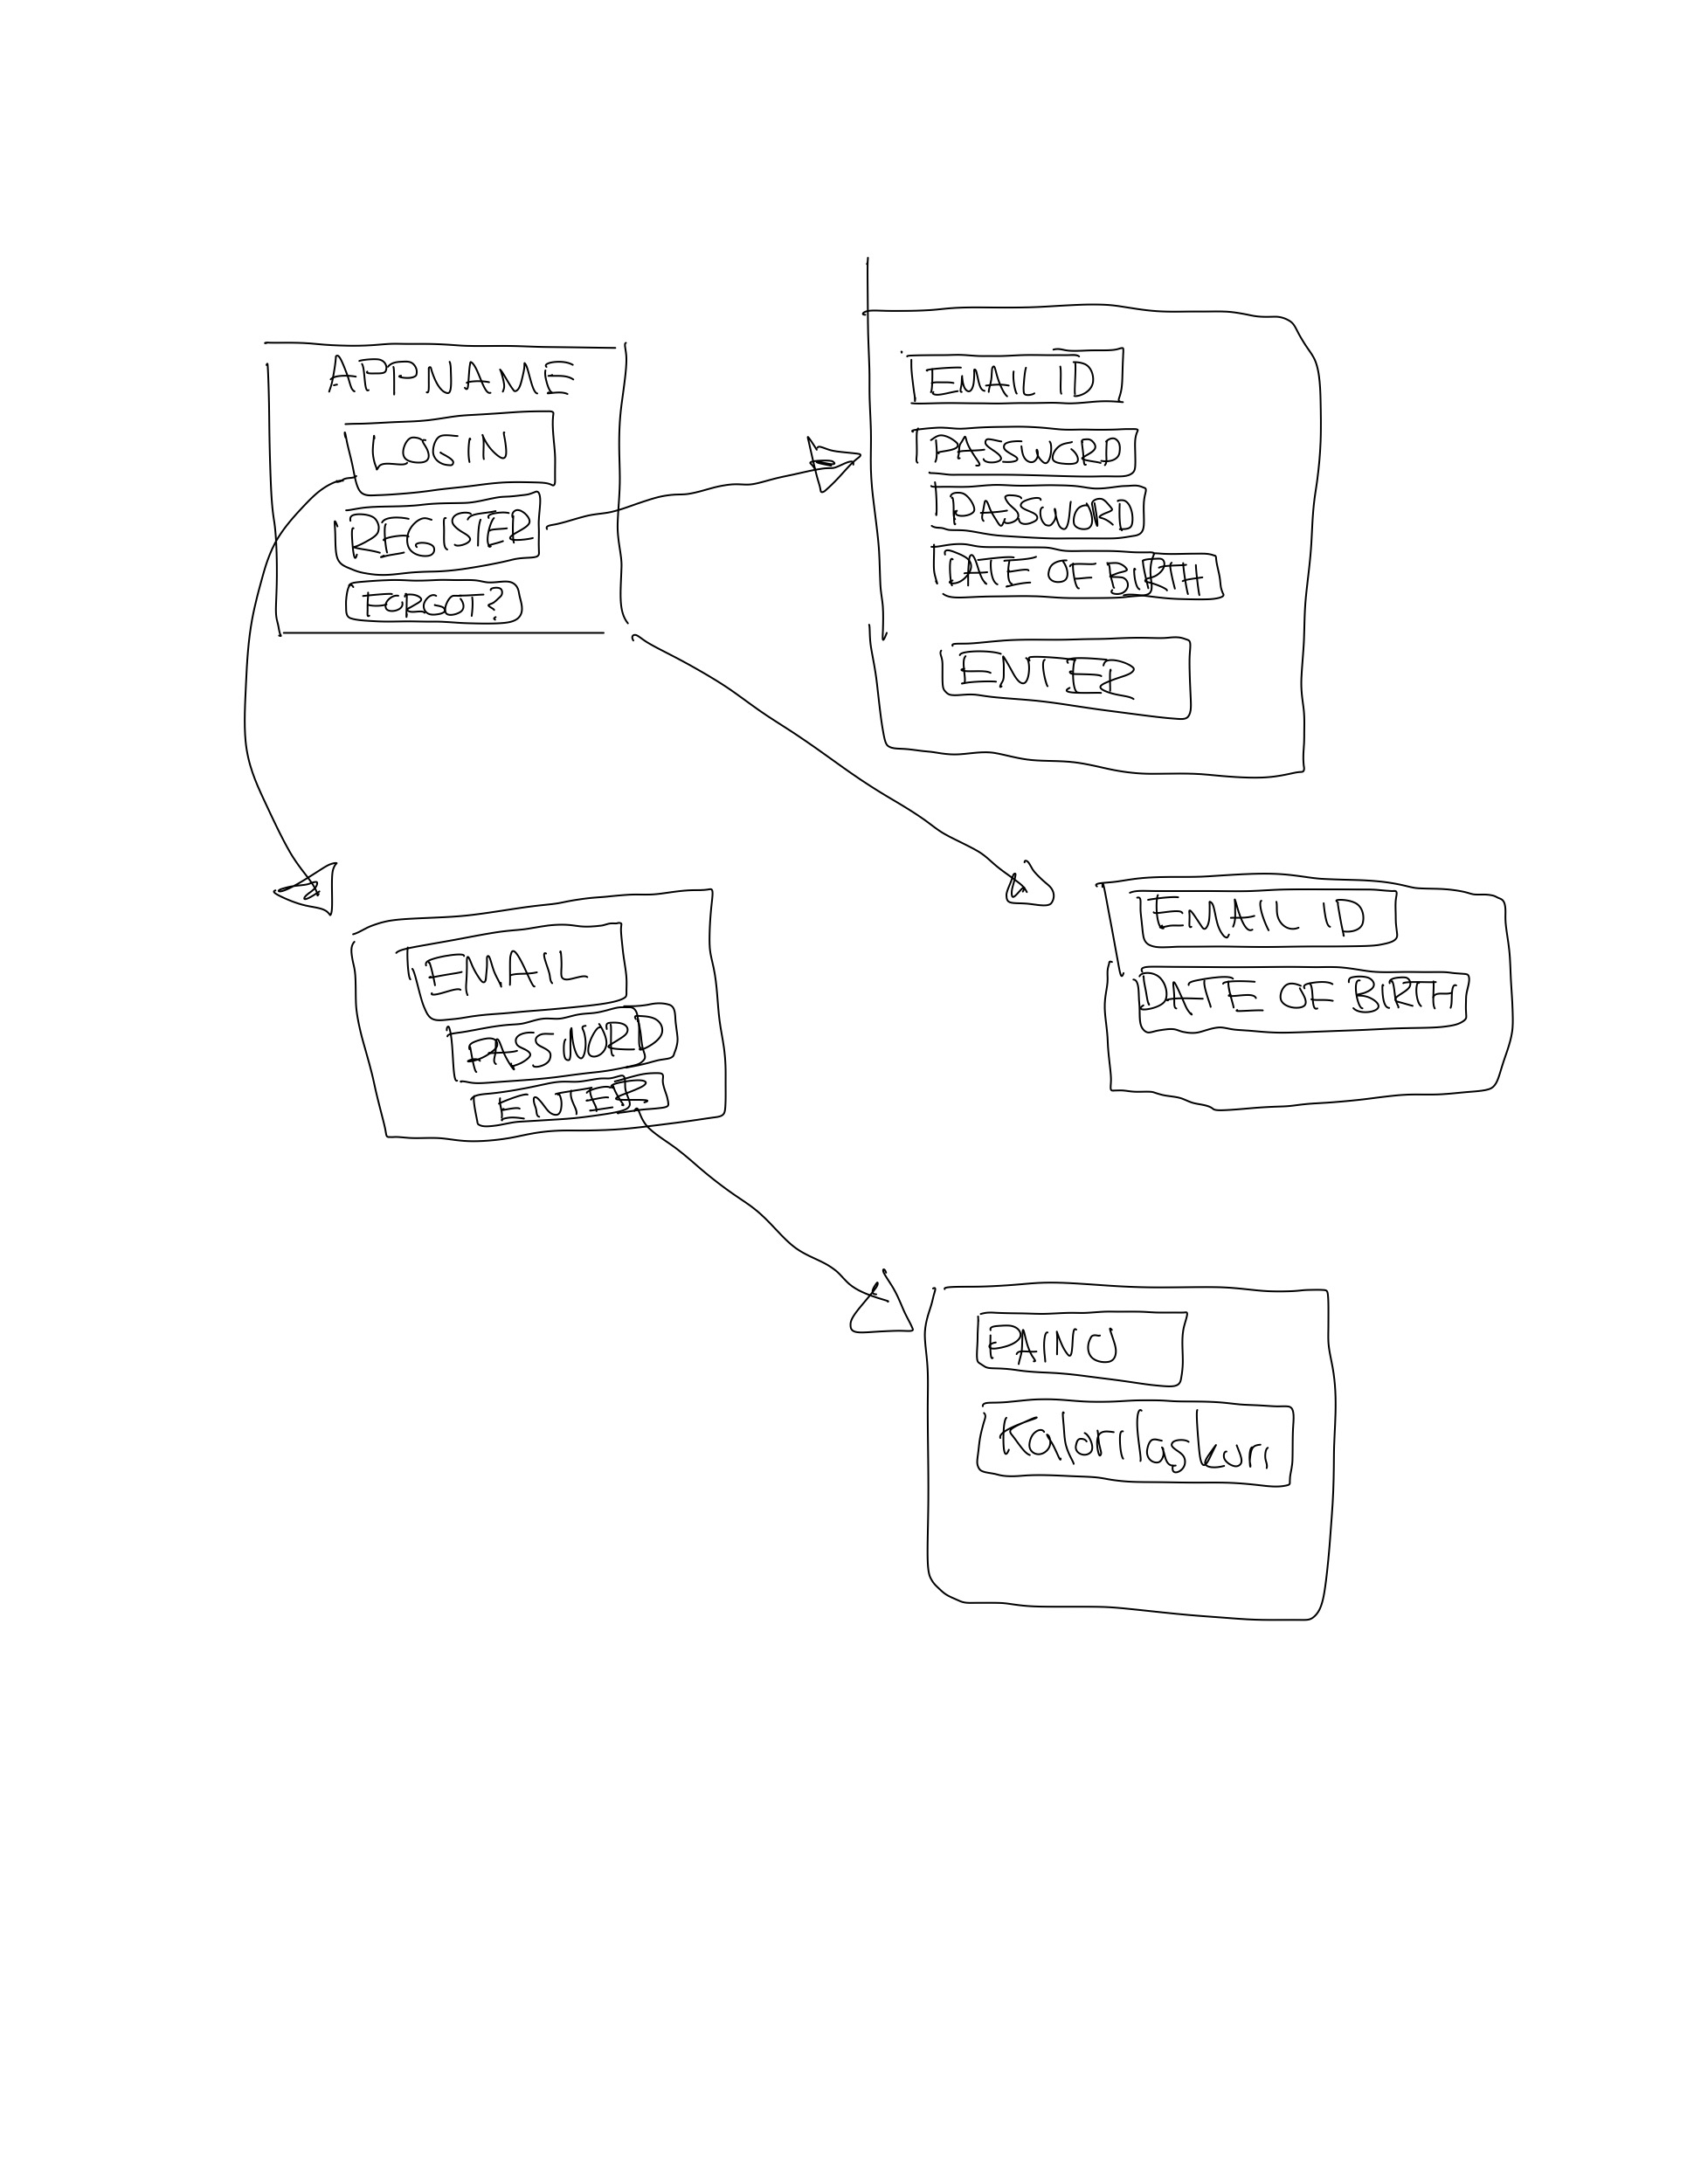 APPNAME
LOGIN
REGISTER
FORGOT?
EMAIL ID
PASSWORD
PASSWORD
DATE OF BIRTH
ENTER
EMAIL
PASSWORD
ENTER
EMAIL ID
DATE OF BIRTH
PAINO
Kalorilaskuri